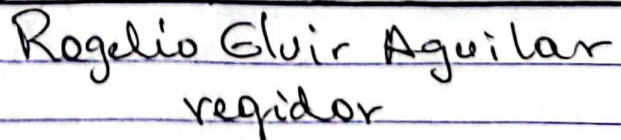 Rogelio Elvir Aguilar
regidor